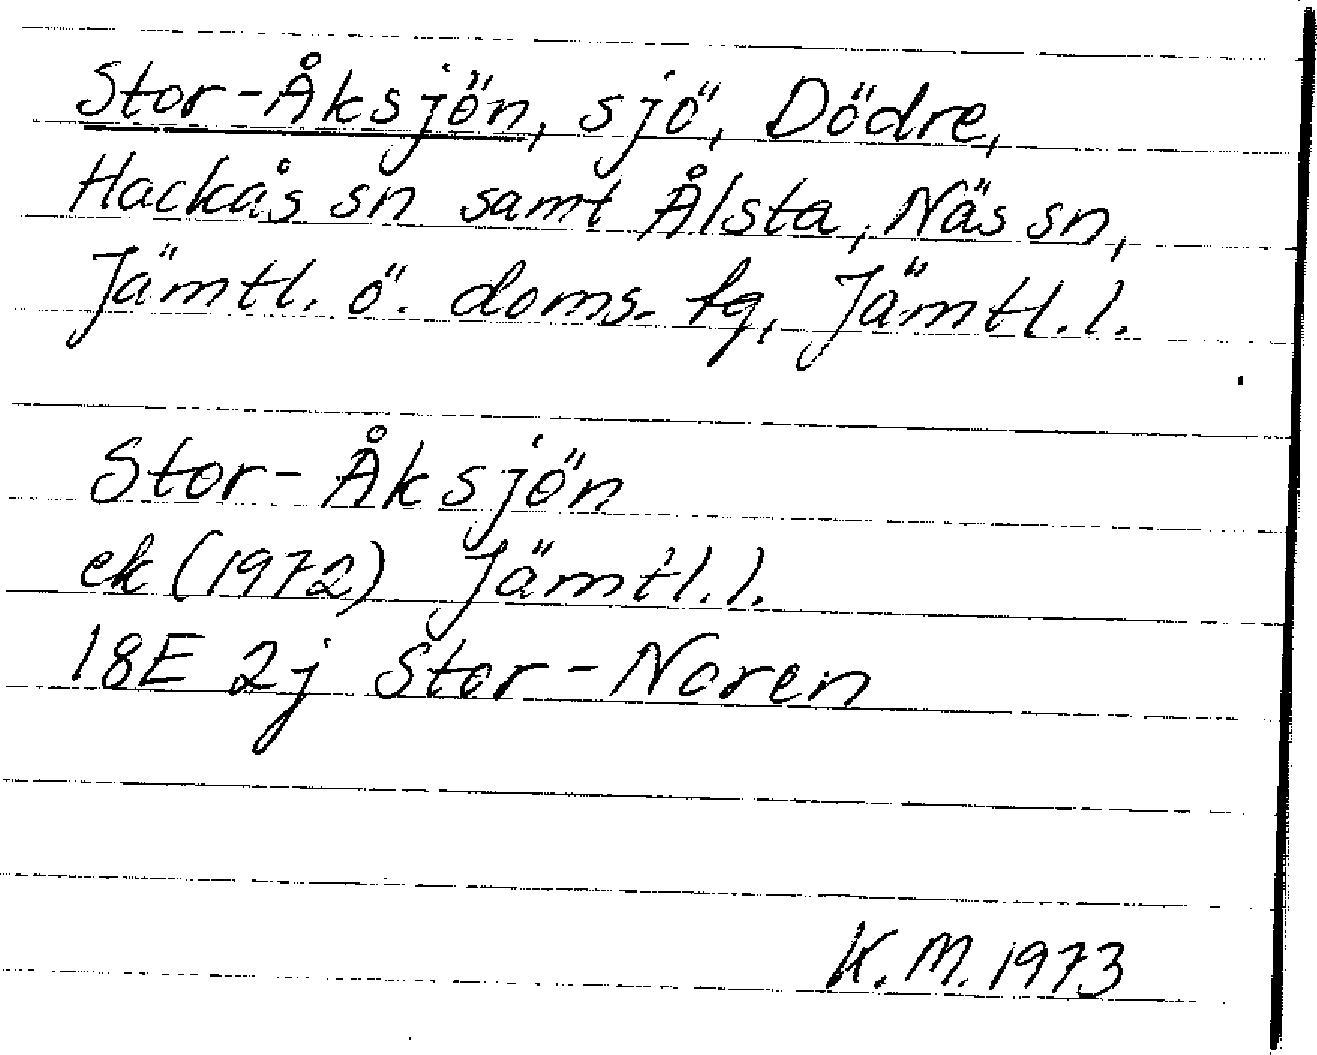 Stor-Åksjön, sjö, Dödre,
Hackås sn samt Ålsta, Näs sn,
Jämtl. ö. doms. tg, Jämtl. l.
Stor-Åksjön
ek (1972) Jämtl. l.
18E 2j Stor-Noren
K. M. 1973